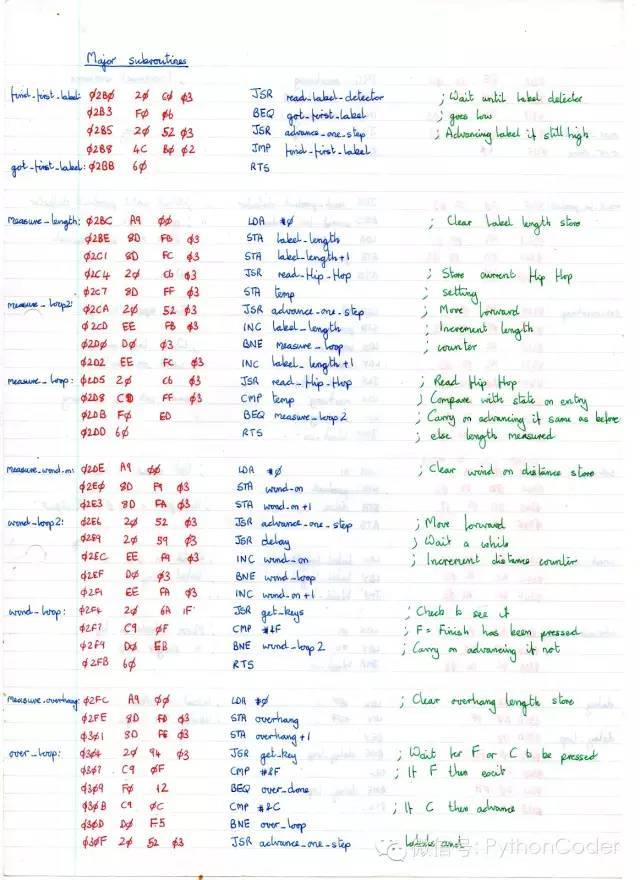 Major subroutines
find_first_label: 02B0 20 C0 03 JSR read_label_detector ; Wait until label detector
02B3 F0 06 BEQ got_first_label ; goes low
02B5 20 52 03 JSR advance_one_step ; Advancing label if still high
02B8 4C B0 02 JMP find_first_label
got_first_label: 02BB 60 RTS
Measure_length: 02BC A9 00 LDA #0 ; Clear label length store
02BE 8D FB 03 STA label_length
02C1 8D FC 03 STA label_length+1
02C4 20 C6 03 JSR read_Hip_Hop ; Store current Hip Hop
02C7 8D FF 03 STA temp ; setting
Measure_loop2: 02CA 20 52 03 JSR advance_one_step ; Move forward
02CD EE FB 03 INC label_length ; Increment length
02D0 D0 03 BNE Measure_loop ; counter
02D2 EE FC 03 INC label_length+1
Measure_loop: 02D5 20 C6 03 JSR read_Hip_Hop ; Read Hip Hop
02D8 CD FF 03 CMP temp ; Compare with state on entry
02DB F0 ED BEQ measure_loop2 ; Carry on advancing if same as before
02DD 60 RTS ; else length measured
Measure_wind_on: 02DE A9 00 LDA #0 ; Clear wind on distance store
02E0 8D F9 03 STA wind_on
02E3 8D FA 03 STA wind_on+1
wind_loop2: 02E6 20 52 03 JSR advance_one_step ; Move forward
02E9 20 59 03 JSR delay ; Wait a while
02EC EE F9 03 INC wind_on ; Increment distance counter
02EF D0 03 BNE wind_loop
02F1 EE FA 03 INC wind_on+1
wind_loop: 02F4 20 6A 1F JSR get_keys ; Check to see if
02F7 C9 0F CMP #&F ; F = Finish has been pressed
02F9 D0 EB BNE wind_loop2 ; Carry on advancing if not
02FB 60 RTS
Measure_overhang: 02FC A9 00 LDA #0 ; Clear overhang length store
02FE 8D FD 03 STA overhang
0301 8D FE 03 STA overhang+1
over_loop: 0304 20 94 03 JSR get_key ; Wait for F or C to be pressed
0307 C9 0F CMP #&F ; If F then exit
0309 F0 12 BEQ over_done
030B C9 0C CMP #&C ; If C then advance
030D D0 F5 BNE over_loop
030F 20 52 03 JSR advance_one_step
微信号: PythonCoder